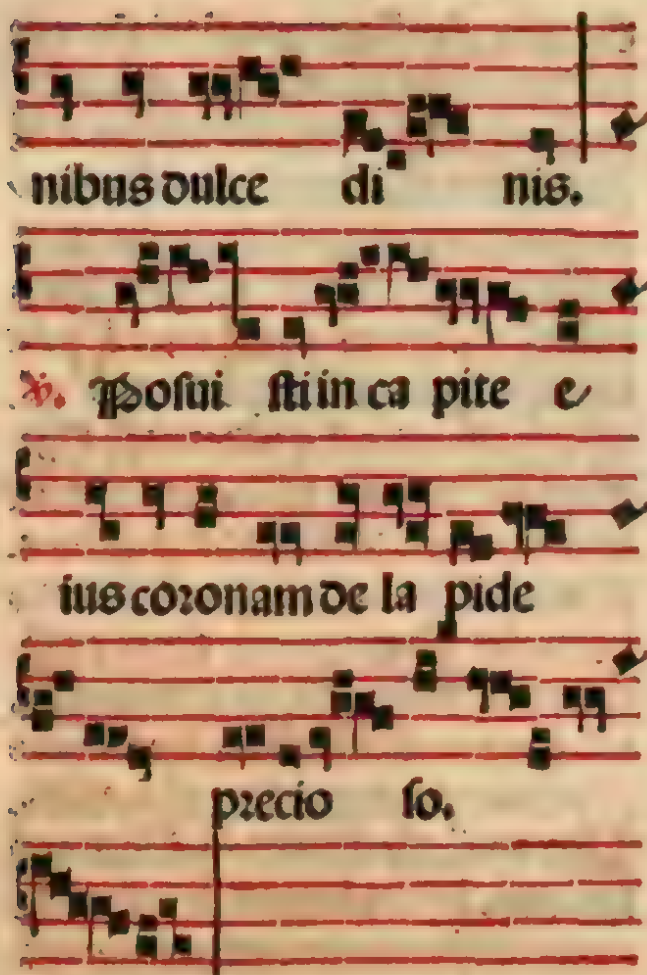 nibus dulce di nis.
℣. Posui sti in ca pite e
ius coronam de la pide
precio so.